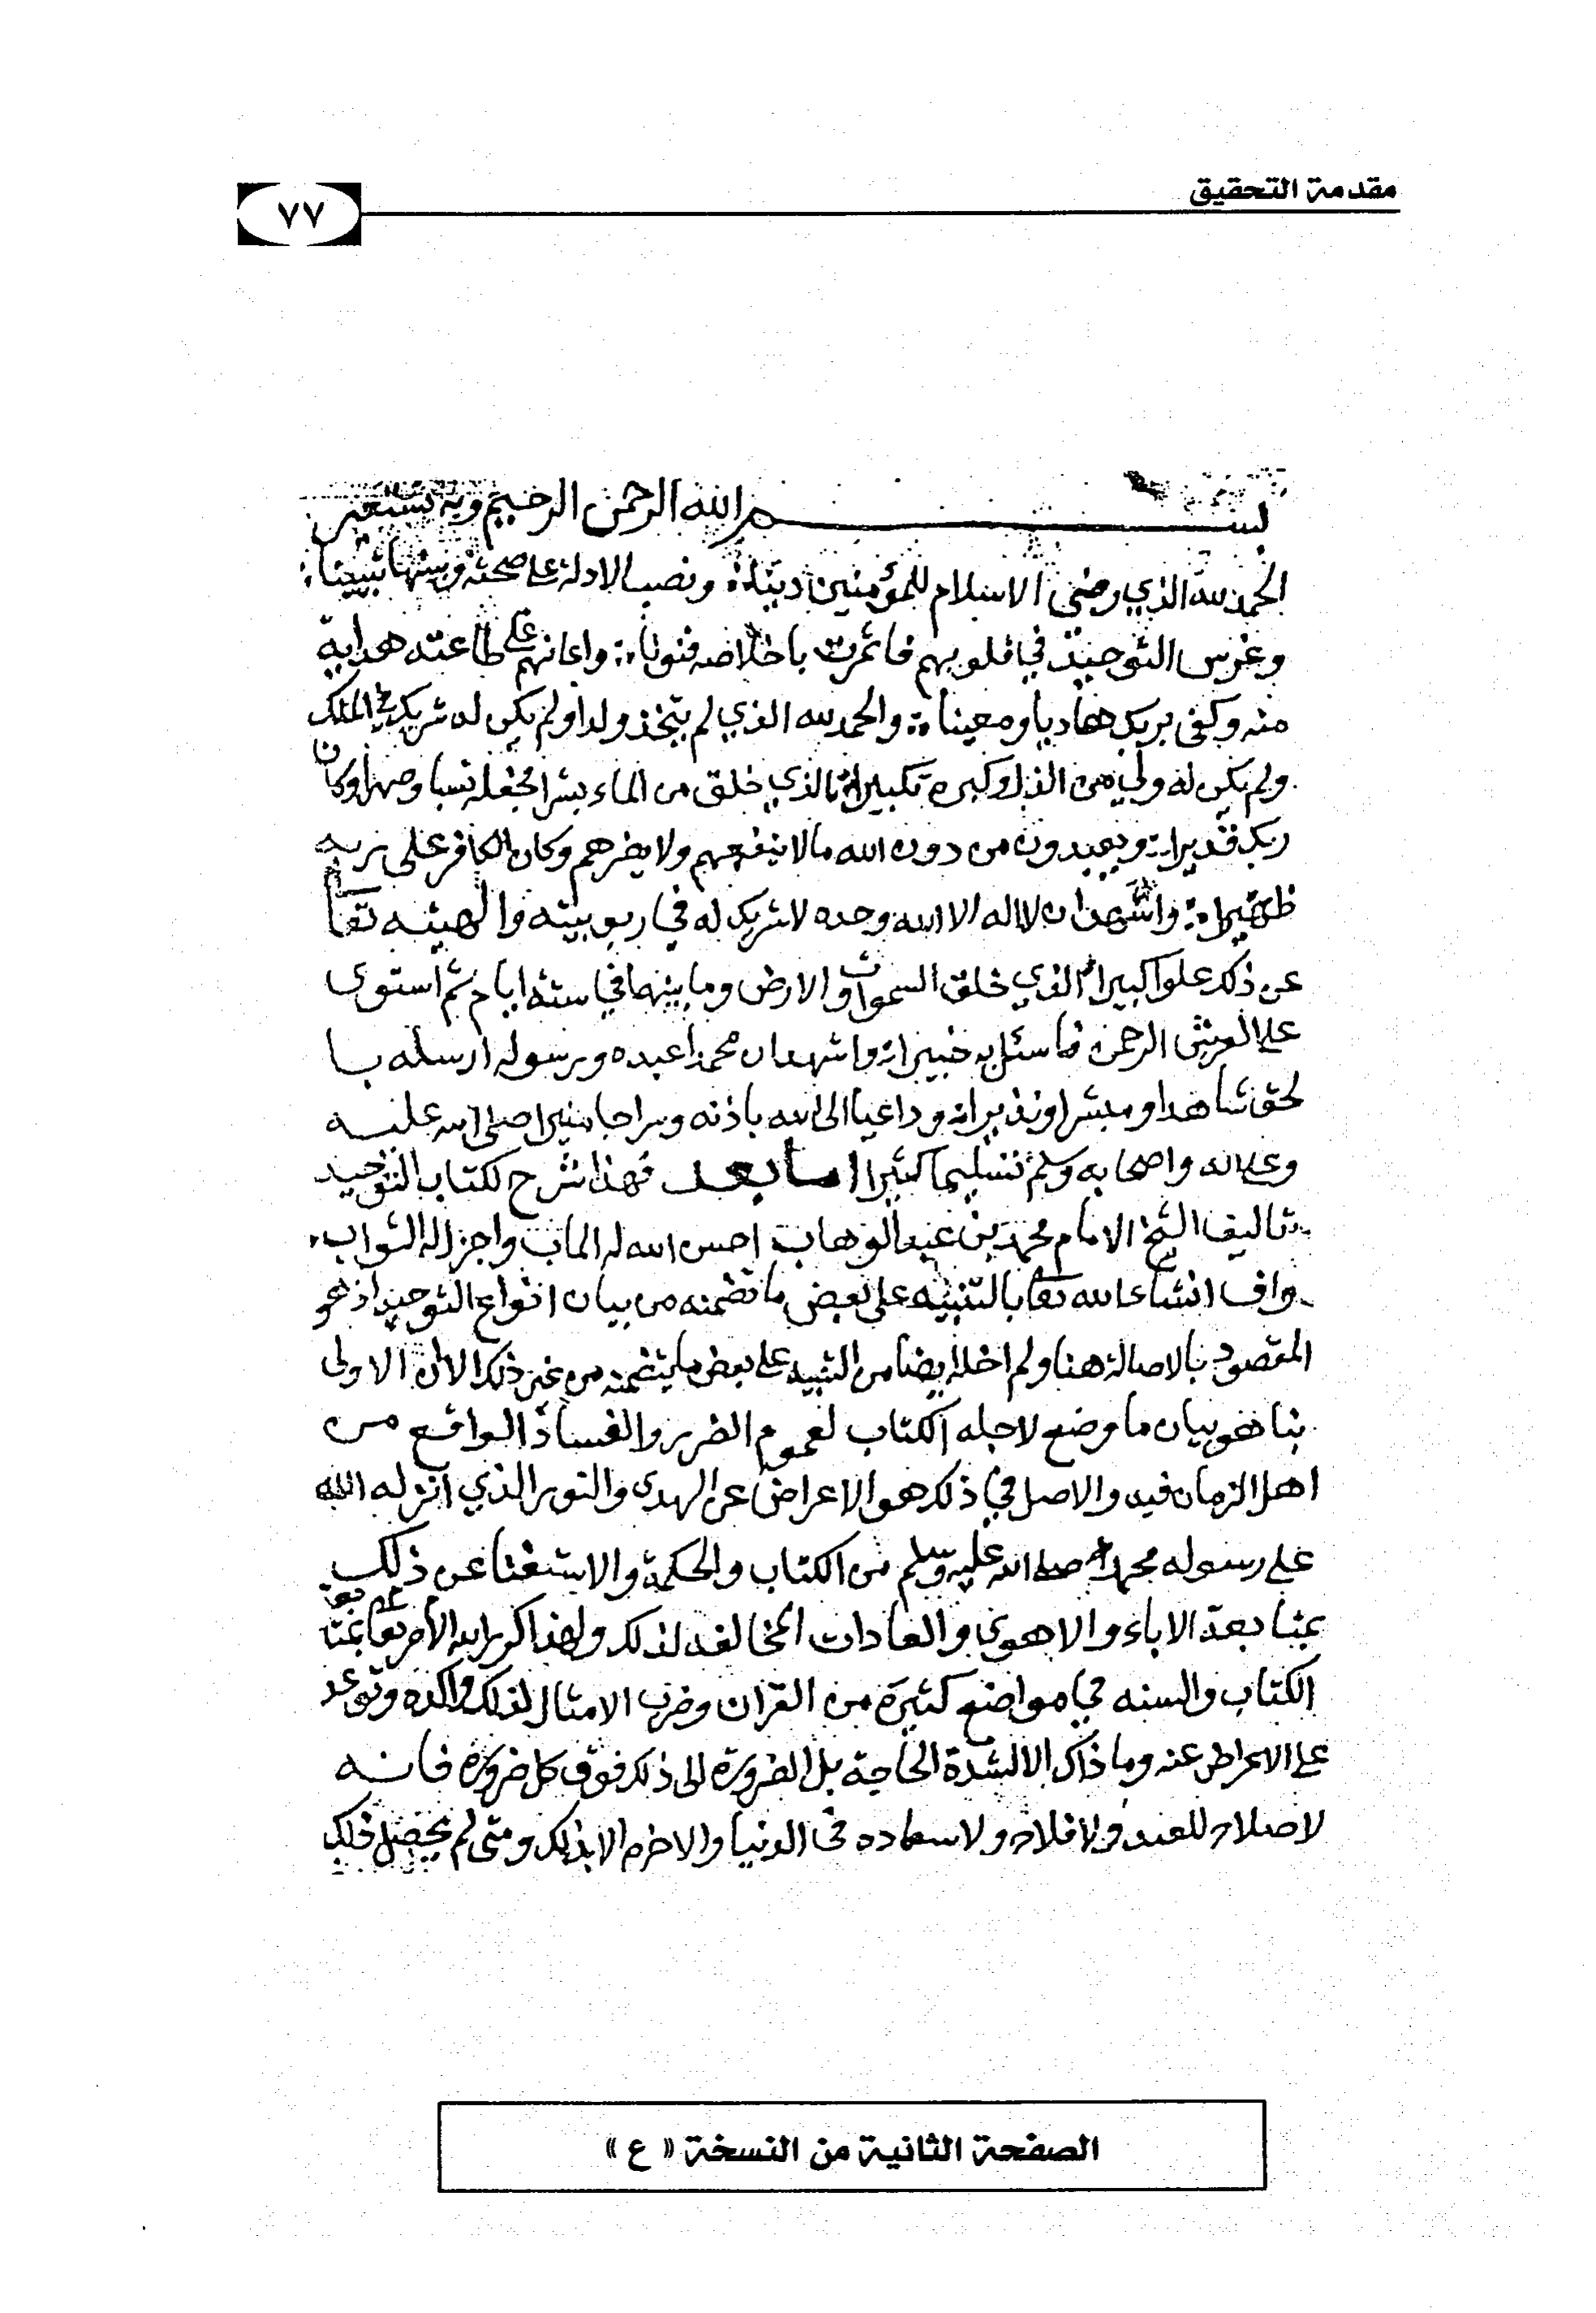 مقدمة التحقيق
٧٧
بسم الله الرحمن الرحيم وبه نستعين
الحمد لله الذي رضي الاسلام للمؤمنين دينا ونصب الادلة على صحته وبينها تبيينا
وغرس التوحيد في قلوبهم فاثمرت باخلاصه فنونا واعانهم على طاعته هداية
منه وكفى بربك هاديا ومعينا والحمد لله الذي لم يتخذ ولدا ولم يكن له شريك في الملك
ولم يكن له ولي من الذل وكبره تكبيرا الذي خلق من الماء بشرا فجعله نسبا وصهرا وكان
ربك قديرا ويعبدون من دون الله ما لا ينفعهم ولا يضرهم وكان الكافر على ربه
ظهيرا واشهد ان لا اله الا الله وحده لا شريك له في ربوبيته والهيته تعا
عن ذلك علوا كبيرا الذي خلق السموات والارض وما بينهما في ستة ايام ثم استوى
على العرش الرحمن فاسئل به خبيرا واشهد ان محمدا عبده ورسوله ارسله با
لحق شاهدا ومبشرا ونذيرا وداعيا الى الله باذنه وسراجا منيرا صلى الله عليه
وعلى اله واصحابه وسلم تسليما كثيرا اما بعد فهذا شرح لكتاب التوحيد
تاليف الشيخ الامام محمد بن عبد الوهاب احسن الله له الماب واجزل له الثواب
واف انشاء الله تعا بالتنبيه على بعض ما تضمنه من بيان انواع التوحيد اذ هو
المقصود بالاصالة هنا ولم اخله ايضا من التنبيه على بعض ما يتضمنه من غير ذلك الا ان الاولى
بنا هو بيان ما وضع لاجله الكتاب لعموم الضرر والفساد الواقع من
اهل الزمان فيه والاصل في ذلك هو الاعراض عن الهدى والنور الذي انزله الله
على رسوله محمد صلى الله عليه وسلم من الكتاب والحكمة والاستغنا عن ذلك
بمتابعة الاباء والاهوى والعادات المخالفه لذلك ولهذا كرر الله الأمر تعا بمتا
الكتاب والسنه في مواضع كثيرة من القران وضرب الامثال لذلك واكده وتوعد
على الاعراض عنه وما ذاك الا لشدة الحاجة بل الضرورة الى ذلك فوق كل ضرورة فانه
لا صلاح للعبد ولا فلاح ولا سعاده في الدنيا والاخره الا بذلك ومتى لم يحصل ذلك
الصفحة الثانية من النسخة « ع »